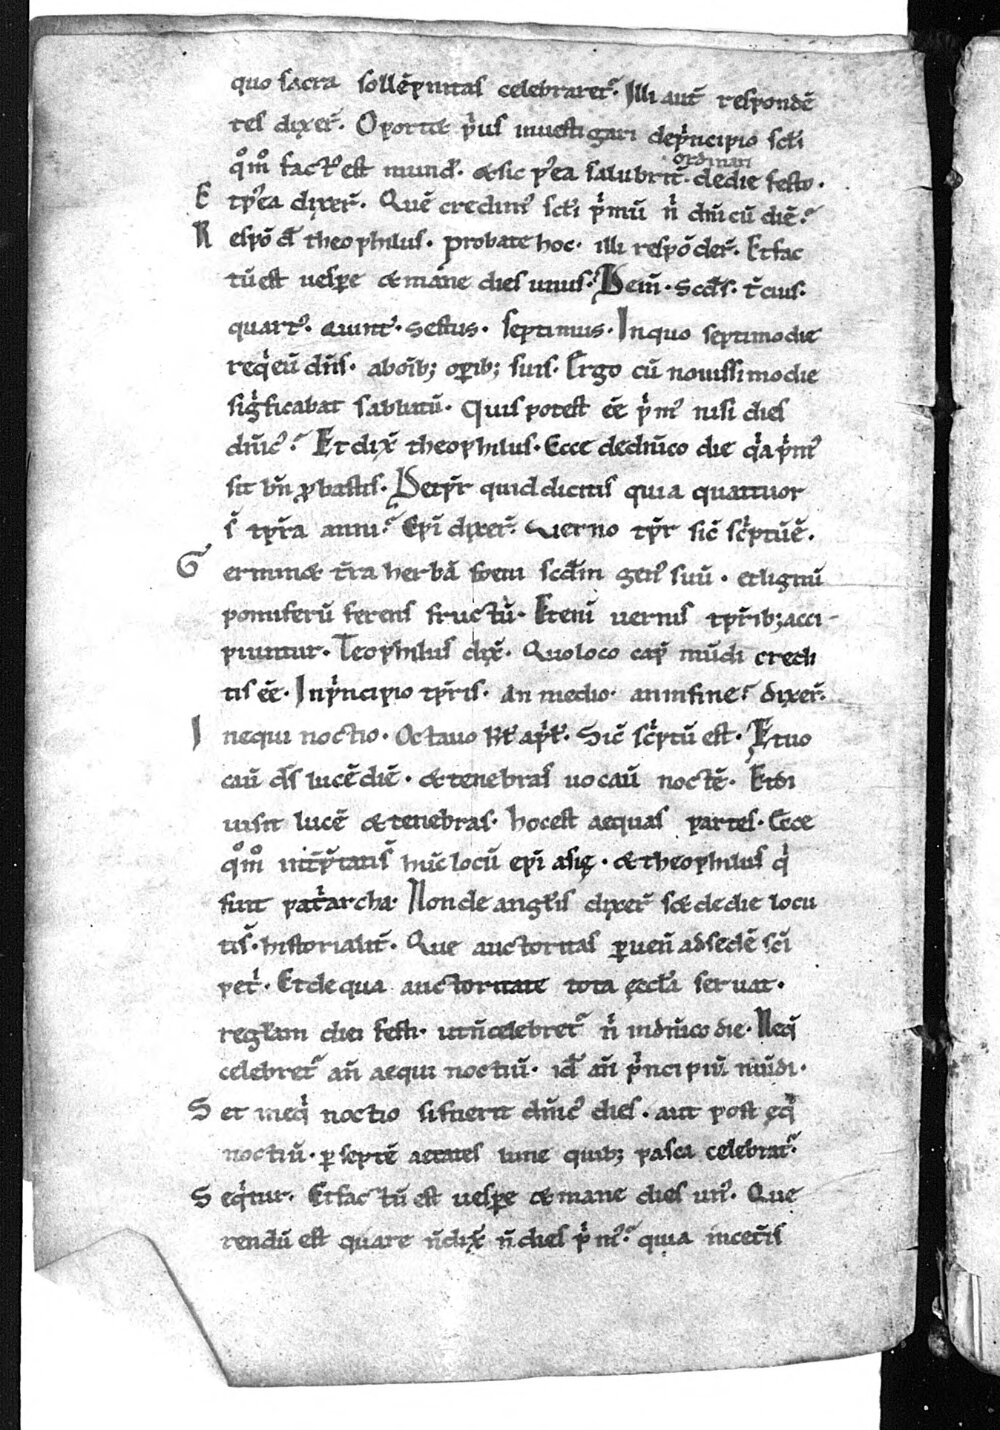 quo sacra sollēpnitas celebraret᷑. Illi aut̄ respondē
tes dixer̄. Oportet p̄us inuestigari dep̄ncipio sc̄li
qͦmͦ fact᷒ est mund᷒. & sic p̄ea salubrit̄ dedie festo.
ordinari
E tp̄ea dixer̄. Quē credim᷒ sc̄li p̄mū n̄ dn̄icū diē?
R espōd̄ theophilus. probate hoc. illi respōder̄. Et fac
tū est uespe & mane dies unus. Deīn. Sc̄ds. t̄cius.
quart᷒. Quint᷒. Sextus. septimus. In quo septimo die
req̄eū dn̄s. ab oīb; opib; suis. Ergo cū nouissimo die
siḡficabat sabbatū. Quis potest eē p̄m᷒ nisi dies
dn̄ic᷒? Et dix̄ theophilus. Ecce dedn̄ico die q̄a p̄m᷒
sit bn̄ pbastis. Detp̄r quid dicitis quia quattuor
s̄ tp̄ra anni? Ep̄i dixer̄. Uerno tp̄r sic̄ sc̄ptū ē.
G erminet t̄ra herbā foeni scd̄m gen᷒ suū. et lignū
pomiferū ferens fructū. Etenī uernis tp̄rib; acci
piuntur. Teophilus dix̄. Quo loco cap̄ mūdi credi
tis eē. In p̄ncipio tp̄ris. an medio. an infine? dixer̄.
I nequi noctio. Octauo kl̄ ap̄l̄. Sic̄ sc̄ptū est. Et uo
cauī d̄s lucē diē. & tenebras uocauī noctē. Et di
uisit lucē & tenebras. hoc est aequas partes. Ecce
qͦmͦ int̄p̄tatis hūc locū ep̄i asię. & theophilus q̄
fuit pat̄archa. Non de angl̄is dixer̄ s& de die locu
tis̄. historialit̄. Que auctoritas puenī ad sedē sc̄i
pet̄. Et de qua auctoritate tota ęccl̄a seruat.
regl̄am diei festi. ut n̄ celebret᷑ n̄ in dn̄ico die. Neq̄
celebret᷑ an̄ aequi noctiū. id̄ an̄ p̄ncipiū mūdi.
S et in eq̄ noctio si fuerit dn̄ic᷒ dies. aut post ęq̄
noctiū. p septē aetates lune quib; pasca celebrat᷑.
S eq̄tur. Et factū est uespe & mane dies un᷒. Que
rendū est quare n̄ dix̄ n̄ dies p̄m᷒? quia incet̄is